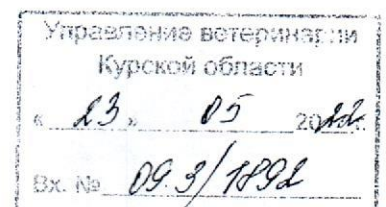 Управление ветеринарии
Курской области
« 23 » 05 2022.
Вх. № 09.3/1892